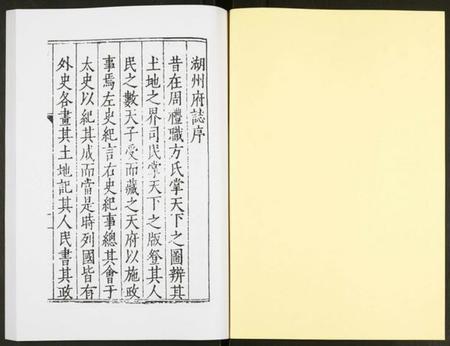 湖州府誌序
昔在周禮職方氏掌天下之圖辨其
土地之界司民掌天下之版登其人
民之數天子受而藏之天府以施政
事焉左史紀言右史紀事總其會于
太史以紀其成而當是時列國皆有
外史各畫其土地記其人民書其政